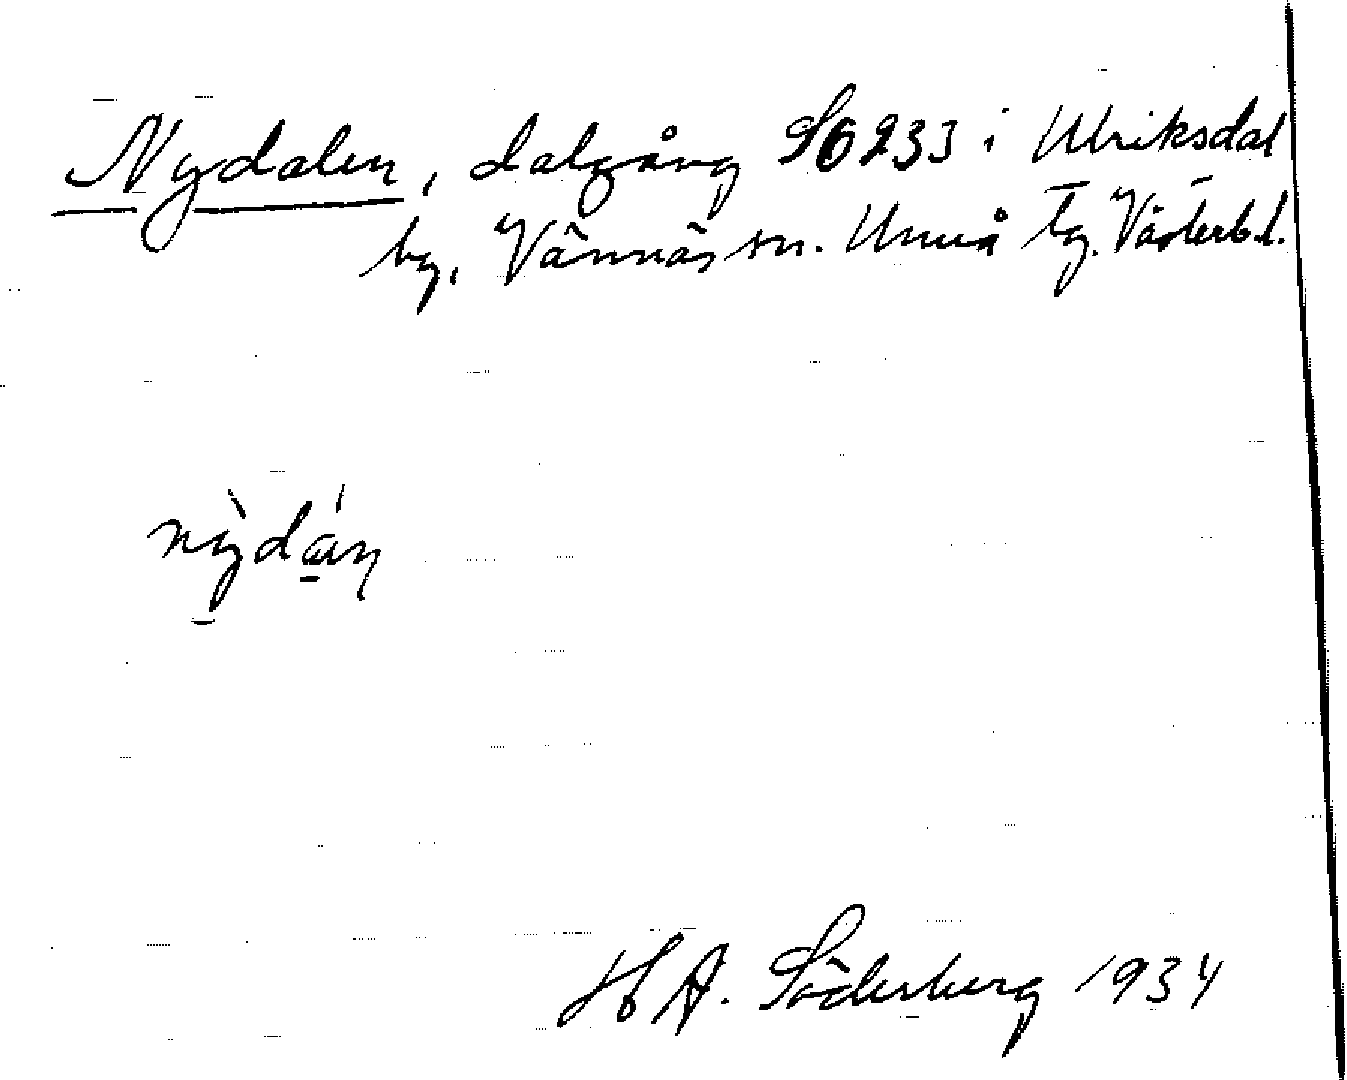 Nydalen, dalgång S6233 i Ulriksdal
by, Vännäs sn. Umeå tg. Västerb. l.
nỳdáṇ
H A. Söderberg 1934